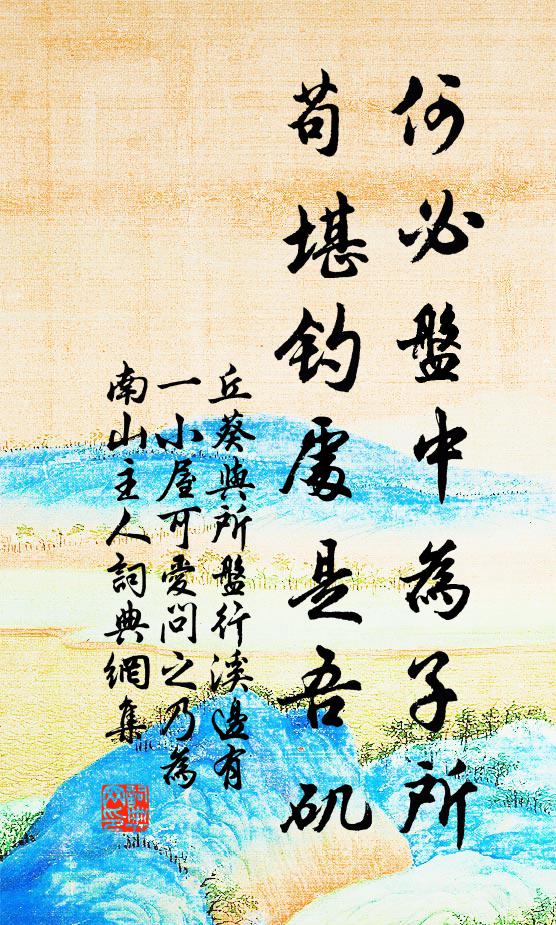 何必盤中為子所
苟堪釣處是吾磯
丘葵與所盤行溪邊有
一小屋可愛問之乃為
南山主人詞典網集